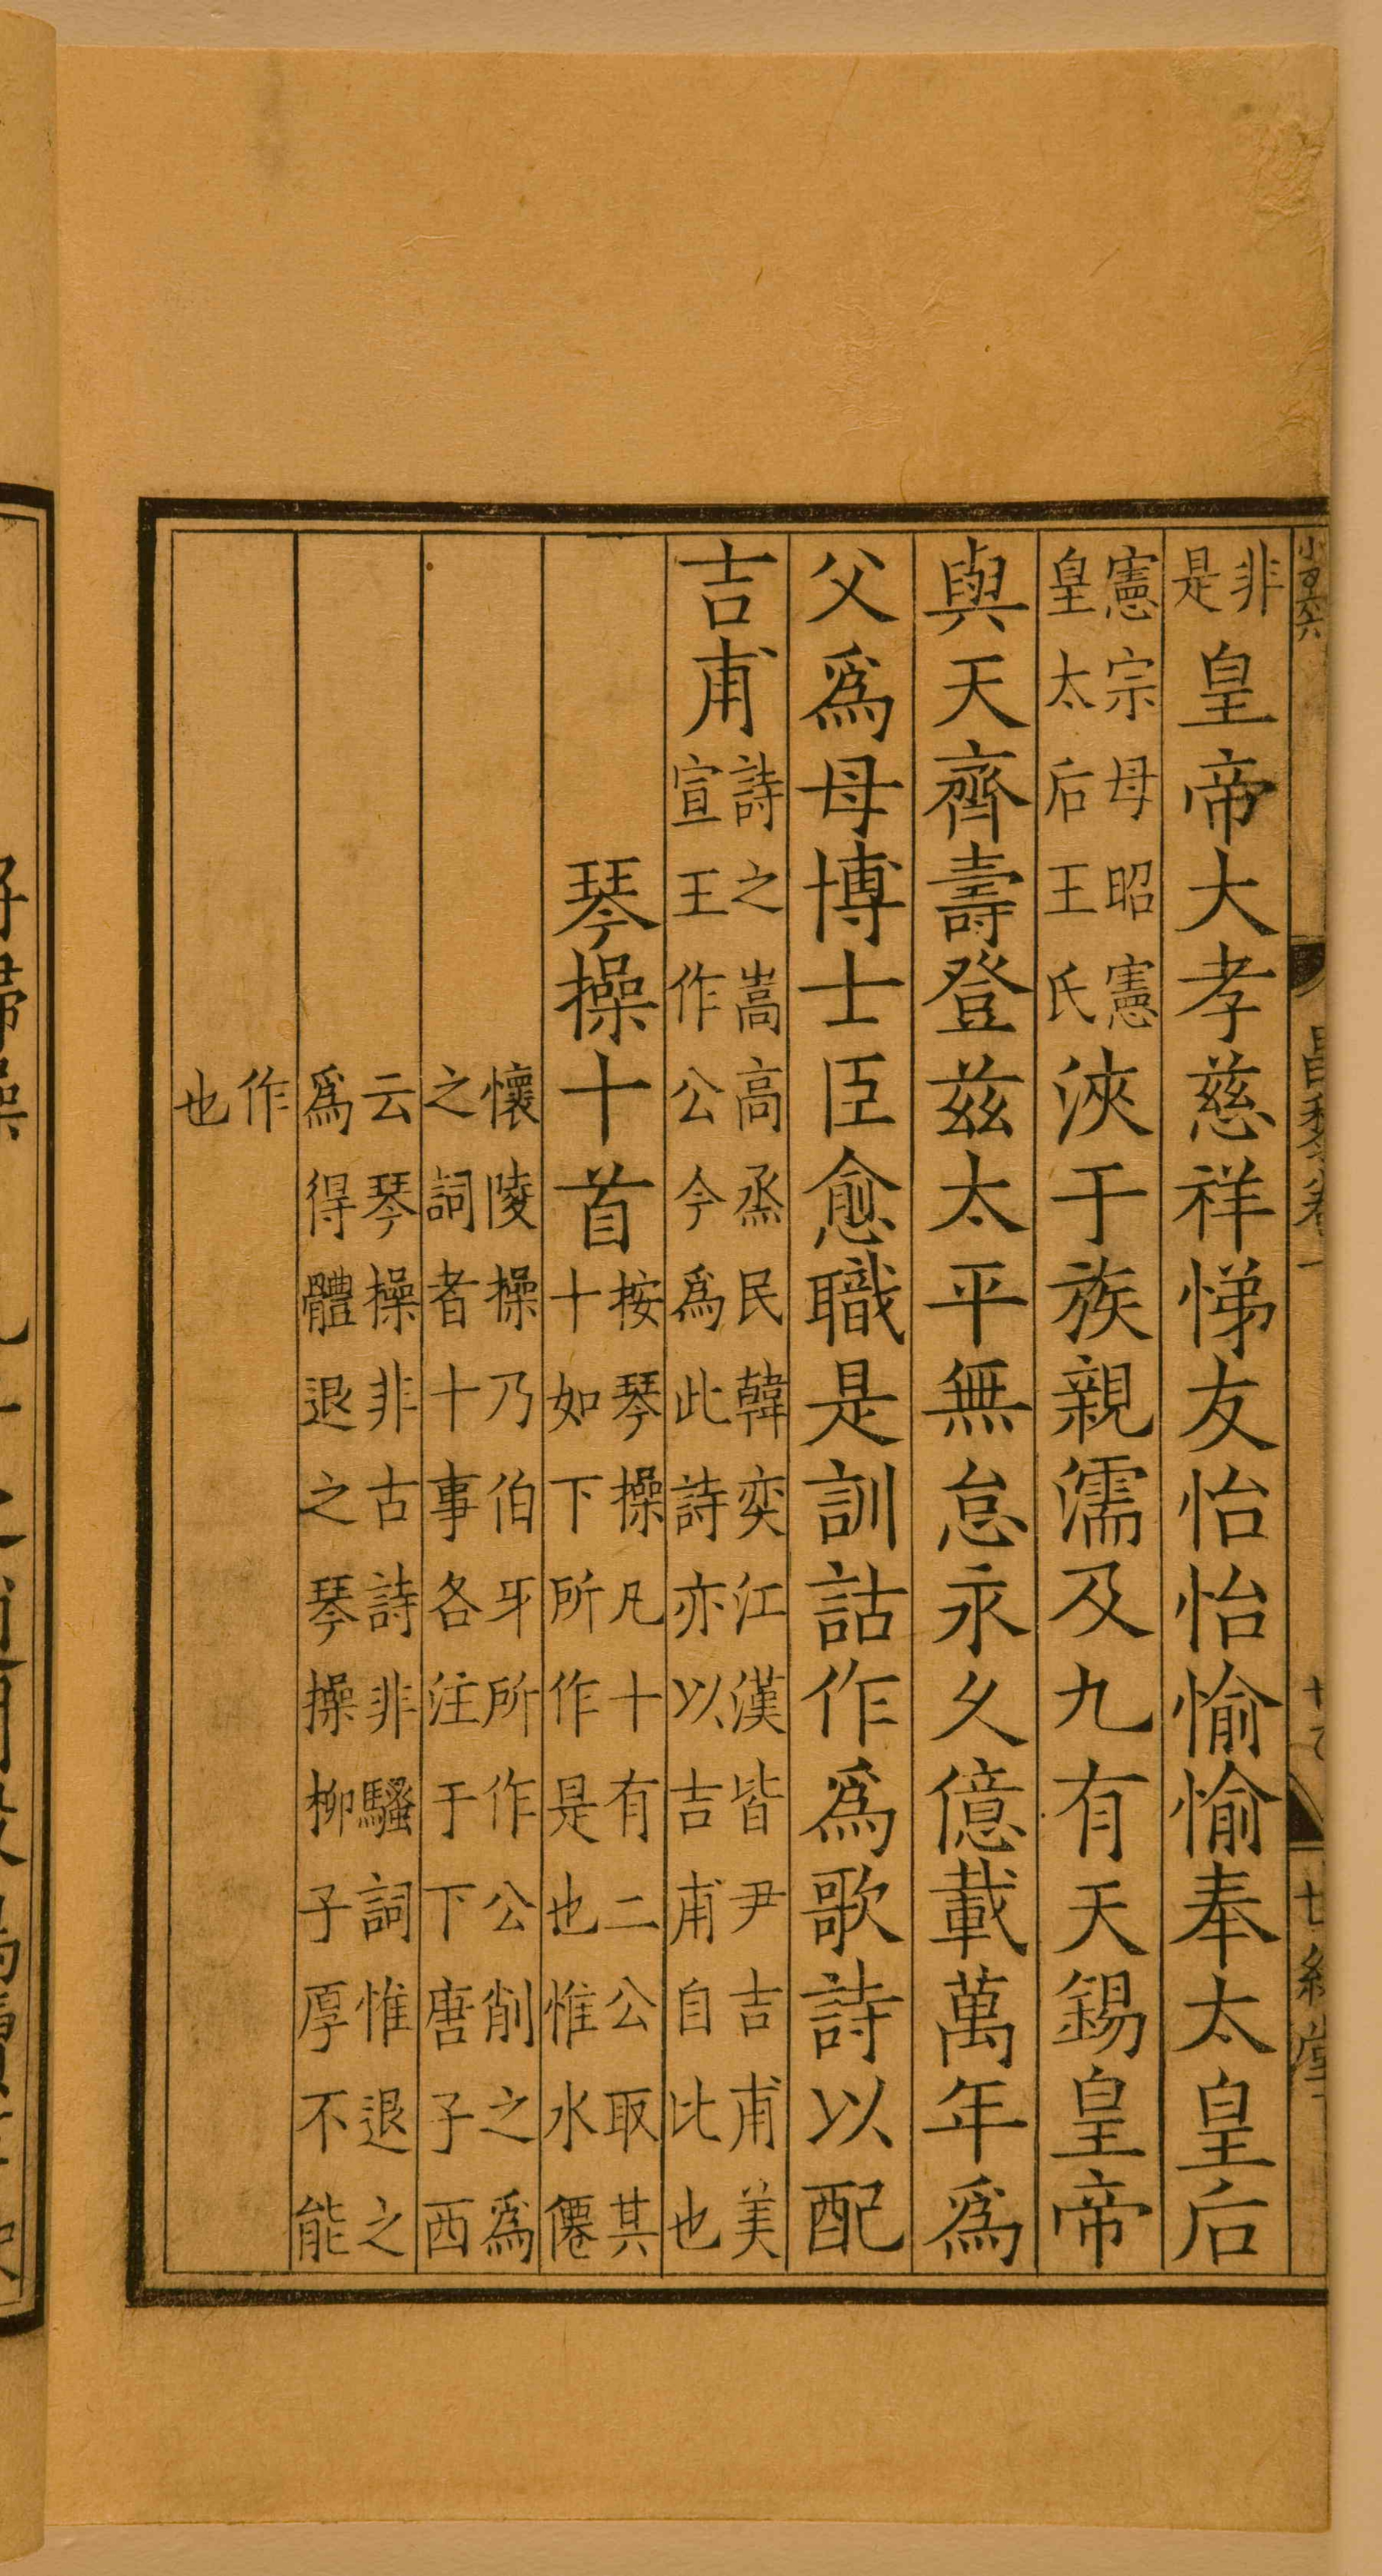 非是皇帝大孝慈祥悌友怡怡愉愉奉太皇后
憲宗母昭憲皇太后王氏浹于族親濡及九有天錫皇帝
與天齊壽登兹太平無怠永久億載萬年爲
父爲母博士臣愈職是訓詁作爲歌詩以配
吉甫詩之嵩高烝民韓奕江漢皆尹吉甫美宣王作公今爲此詩亦以吉甫自比也
琴操十首按琴操凡十有二公取其十如下所作是也惟水僊
懷陵操乃伯牙所作公削之爲之詞者十事各注于下唐子西
云琴操非古詩非騷詞惟退之爲得體退之琴操柳子厚不能
作也